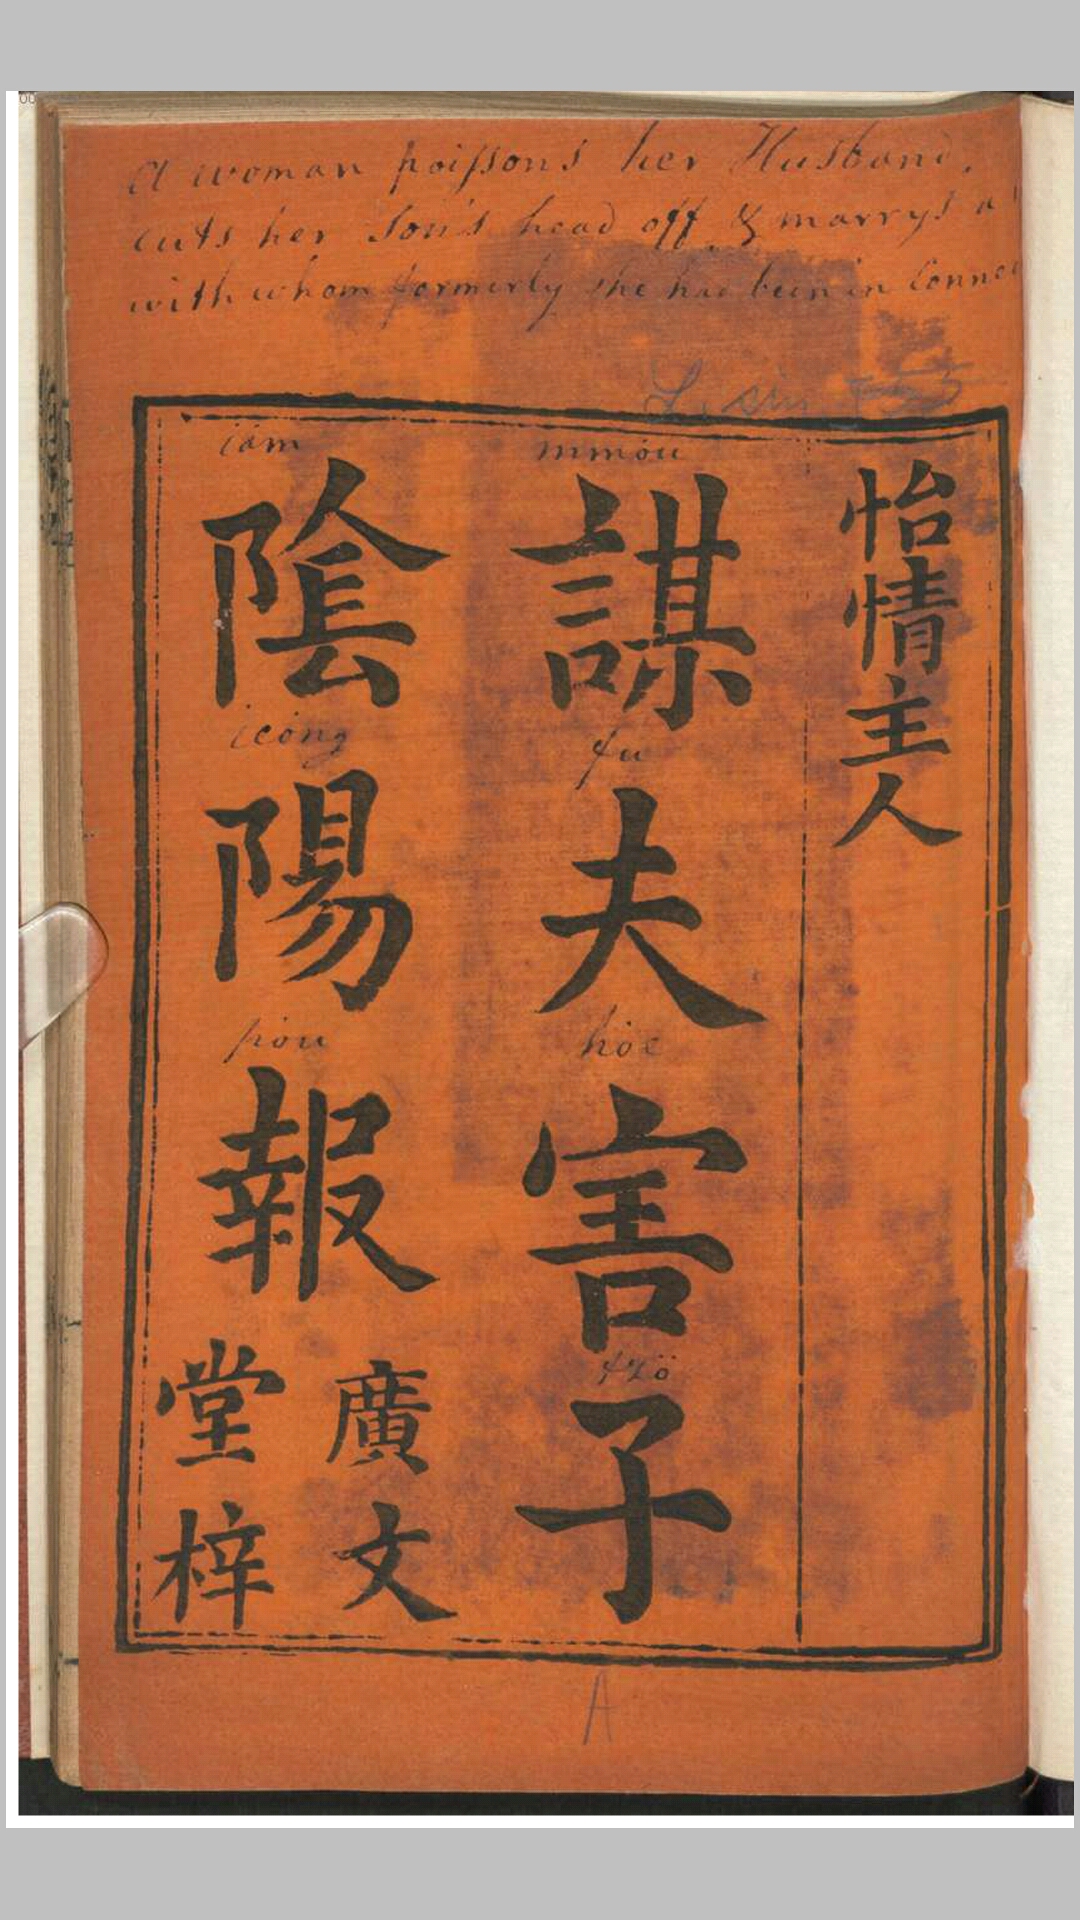 A woman poiſsons her Husband,
cuts her Son's head off & marrys a
with whom formerly she had been in Connec
怡情主人
mmóu
謀
fu
夫
hóe
害
tzö
子
iám
陰
icóng
陽
póu
報
廣文
堂梓
A